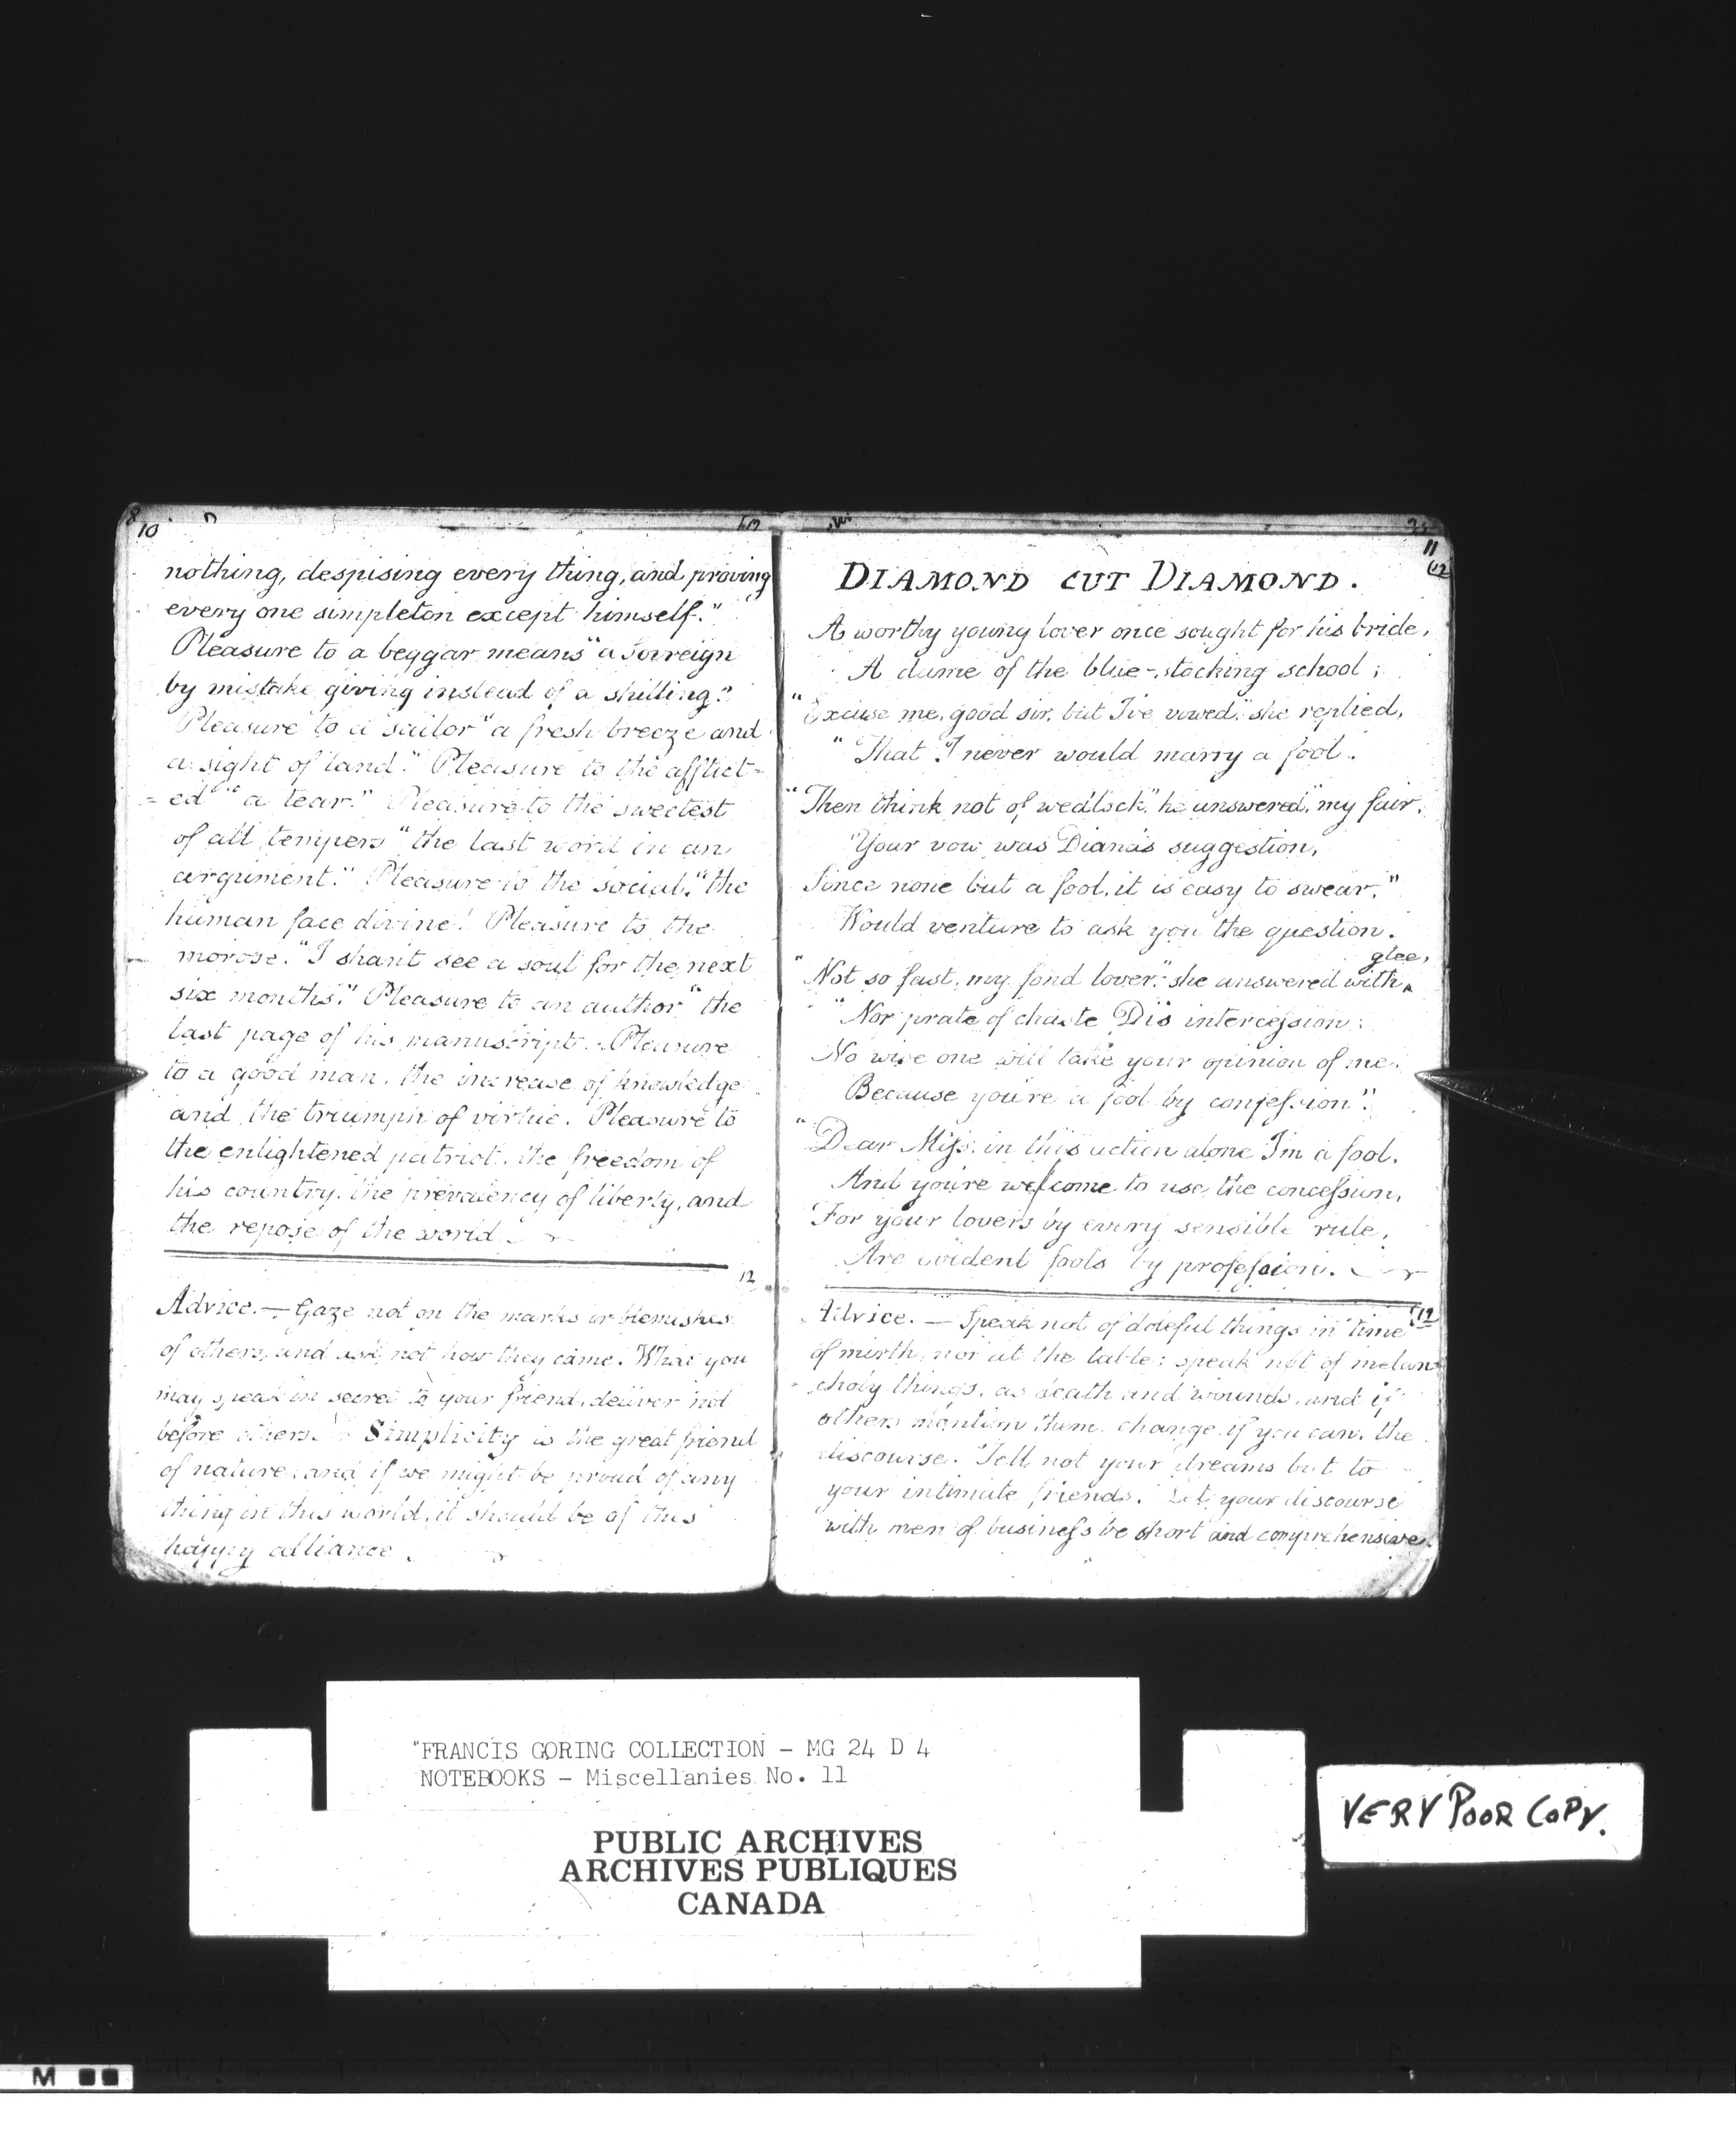 10
nothing, despising every thing, and proving
every one simpleton except himself."
Pleasure to a beggar means "a sovreign
by mistake giving instead of a shilling."
Pleasure to a sailor "a fresh breeze and
a sight of land." Pleasure to the afflict=
=ed "a tear." Pleasure to the sweetest
of all tempers "the last word in an
argument." Pleasure to the social, "the
human face divine! Pleasure to the
morose. "I shan't see a soul for the next
six months." Pleasure to an author "the
last page of his manuscript. Pleasure
to a good man, the increase of knowledge
and the triumph of virtue. Pleasure to
the enlightened patriot, the freedom of
his country, the prevalency of liberty, and
the repose of the world.
12
Advice. — Gaze not on the marks or blemishes
of others, and ask not how they came. What you
may speak in secret to your friend, deliver not
before others. Simplicity is the great friend
of nature, and if we might be proud of any
thing in this world, it should be of this
happy alliance.
11
12
DIAMOND CUT DIAMOND.
A worthy young lover once sought for his bride,
A dame of the blue-stocking school;
"Excuse me, good sir, but I've vowed," she replied,
"That I never would marry a fool.
"Then think not of wedlock," he answered, "my fair,
"Your vow was Diana's suggestion,
Since none but a fool, it is easy to swear,"
Would venture to ask you the question.
"Not so fast, my fond lover," she answered with glee,
"Nor prate of chaste Di's intercession:
No wise one will take your opinion of me,
Because you're a fool by confession."
"Dear Miss, in this action alone I'm a fool,
And you're welcome to use the concession,
For your lovers by every sensible rule,
Are evident fools by profession.
12
Advice. — Speak not of doleful things in time
of mirth, nor at the table: speak not of melan=
choly things, as death and wounds, and if
others mention them, change if you can, the
discourse. Tell not your dreams but to
your intimate friends. Let your discourse
with men of business be short and comprehensive.
"FRANCIS GORING COLLECTION - MG 24 D 4
NOTEBOOKS - Miscellanies No. 11
PUBLIC ARCHIVES
ARCHIVES PUBLIQUES
CANADA
VERY POOR COPY.
M